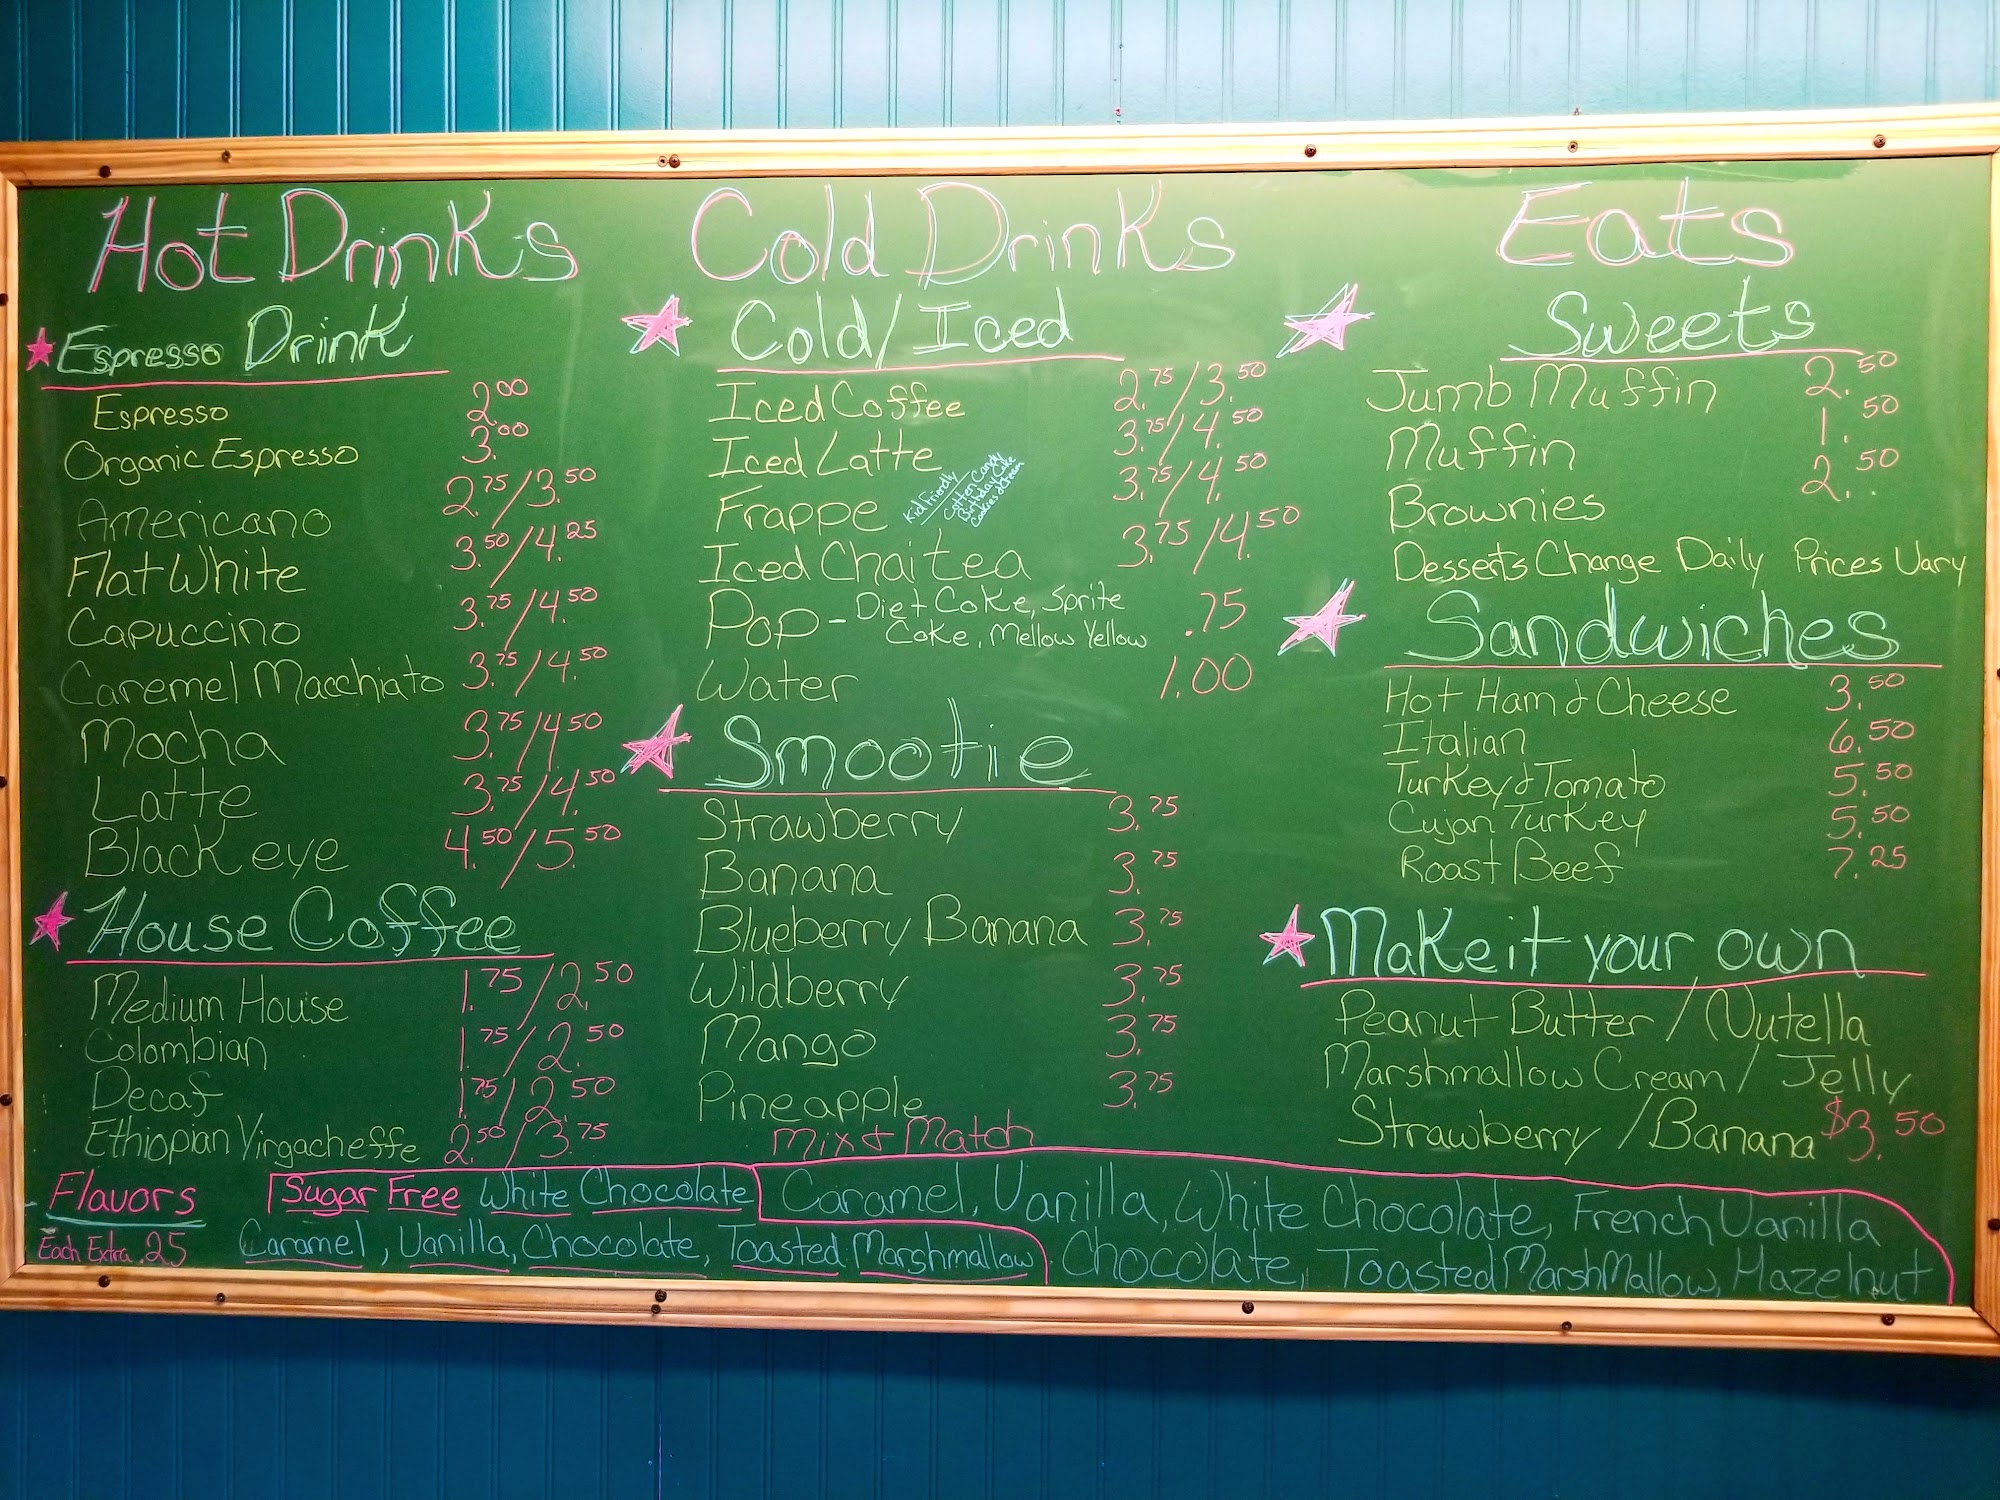 Hot Drinks
Espresso Drink
Espresso 2.00
Organic Espresso 3.00
Americano 2.75/3.50
Flat White 3.50/4.25
Capuccino 3.75/4.50
Caremel Macchiato 3.75/4.50
Mocha 3.75/4.50
Latte 3.75/4.50
Black eye 4.50/5.50
House Coffee
Medium House 1.75/2.50
Colombian 1.75/2.50
Decaf 1.75/2.50
Ethiopian Yirgacheffe 2.50/3.75
Cold Drinks
Cold/Iced
Iced Coffee 2.75/3.50
Iced Latte 3.75/4.50
Frappe 3.75/4.50
Kid Friendly
Cotten Candy
Birthday Cake
Cookies & Cream
Iced Chai tea 3.75/4.50
Pop - Diet Coke, Sprite .75
Coke, Mellow Yellow
Water 1.00
Smootie
Strawberry 3.75
Banana 3.75
Blueberry Banana 3.75
Wildberry 3.75
Mango 3.75
Pineapple 3.75
Mix & Match
Eats
Sweets
Jumb Muffin 2.50
Muffin 1.50
Brownies 2.50
Desserts Change Daily Prices Vary
Sandwiches
Hot Ham & Cheese 3.50
Italian 6.50
Turkey & Tomato 5.50
Cujan Turkey 5.50
Roast Beef 7.25
Make it your own
Peanut Butter / Nutella
Marshmallow Cream / Jelly
Strawberry / Banana $3.50
Flavors
Each Extra .25
Sugar Free White Chocolate
Caramel, Vanilla, Chocolate, Toasted Marshmallow
Caramel, Vanilla, White Chocolate, French Vanilla
Chocolate, Toasted Marshmallow, Hazelnut